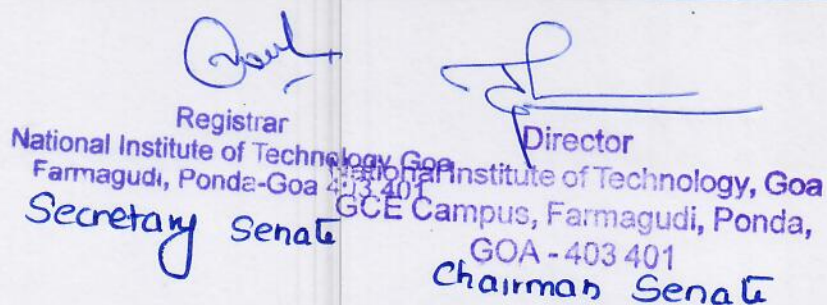 Registrar
National Institute of Technology Goa
Farmagudi, Ponda-Goa 403 401
Secretary Senate
Director
National Institute of Technology, Goa
GCE Campus, Farmagudi, Ponda,
GOA - 403 401
Chairman Senate